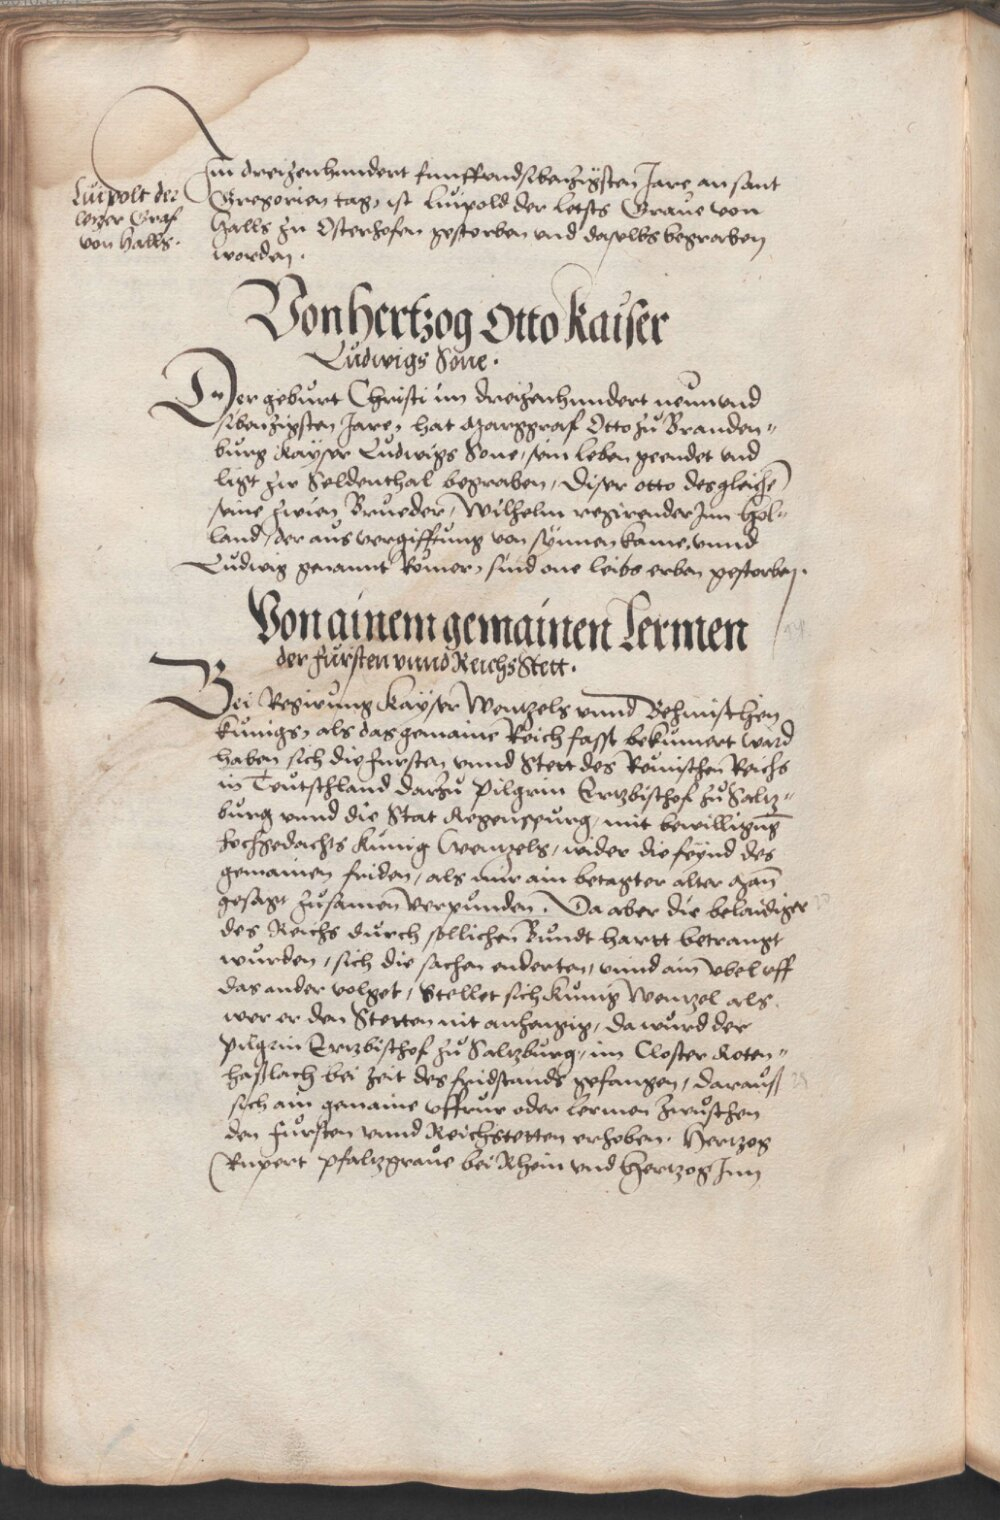 Luipolt der
letzer Graf
von Halls.
Im dreizenhundert funffundsibenzigsten Jare an sant
Gregorien tag, ist Luipold der letsts Graue von
Halls zu Osterhofen gestorben und daselbs begraben
worden.
Von Hertzog Otto Kaiser
Ludwigs Sone.
Der geburt Christi im dreizenhundert neunund
sibenzigsten Jare, hat Marggraf Otto zu Branden„
burg Kayser Ludwigs Sone, sein leben geendet und
ligt zu Seldenthal begraben, diser otto desgleichē
seine zwien Brueder, Wilhelm regirender Inn Hol„
land, der aus vergifftung von synnen kame, vnnd
Ludwig genannt Römer, sind one leibs erben gestorben.
Von ainem gemainen Lermen
der fürsten vnnd Reichs Stett.
Bei Regirung Kayser Wentzels vnnd Behmischen
Kunigs, als das gemaine Reich fasst bekumert ward
haben sich die fursten vnnd Stett des Römischen Reichs
in Teutschland darzu Pilgrin Ertzbischof zu Saltz„
burg vnnd die Stat Regenspurg, mit bewilligūg
hochgedachts Kunig Wentzels, wider die feynd des
gemainen friden, als mir ain betagter alter Man̄
gesagt zusamen verpunden. Da aber die belaidiger
des Reichs durch sollichen Bundt hartt betrangt
wurden, sich die sachen enderten, vnnd ain vbel vff
das ander volget, Stellet sich Kunig Wentzel als
wer er den Stetten nit anhengig, da wurd der
Pilgrin Ertzbischof zu Saltzburg, im Closter Roten„
haslach bei zeit des fridstands gefangen, darauß
sich ain gemaine vffrur oder Lermen zwuschen
den fursten vnnd Reichstetten erhoben. Hertzog
Rupert Pfaltzgraue bei Rhein vnd Hertzog Inn